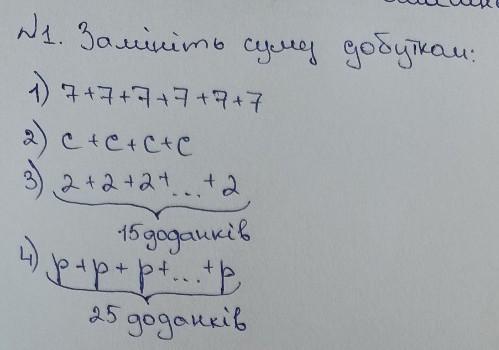 №1. Замініть суму добутком:
1) 7+7+7+7+7+7
2) c+c+c+c
3) 2+2+2+...+2
15 доданків
4) p+p+p+...+p
25 доданків